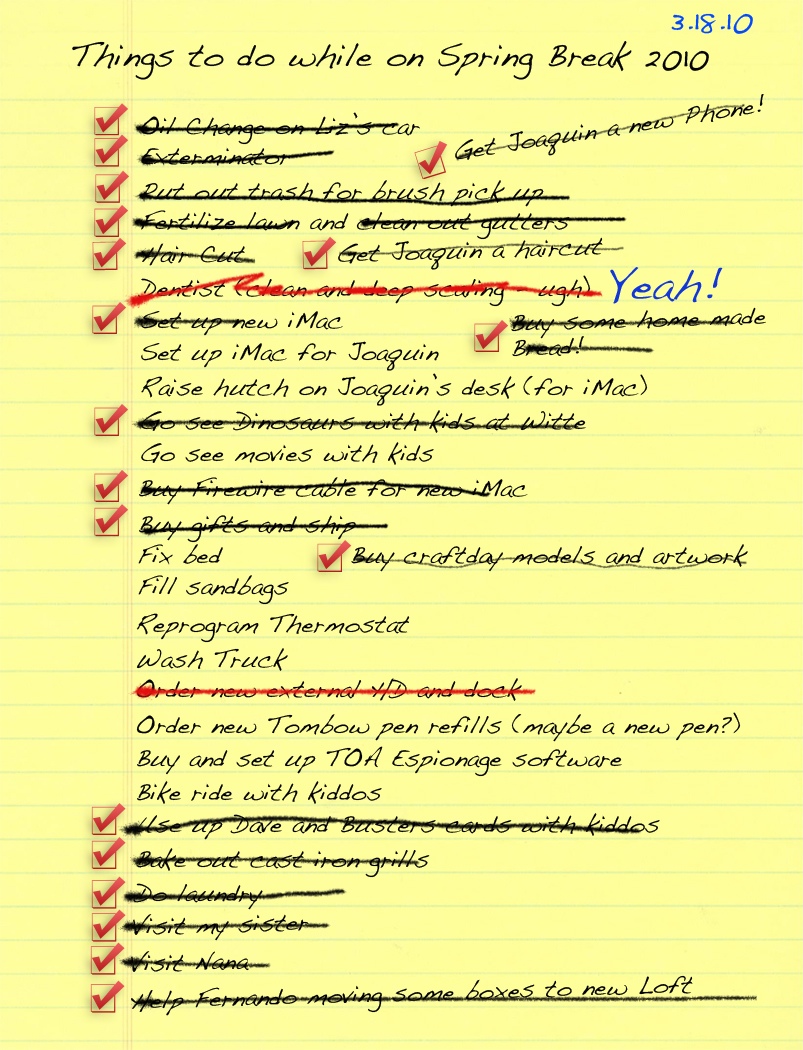 3.18.10
Things to do while on Spring Break 2010
Oil Change on Liz's car
Get Joaquin a new Phone!
Exterminator
Put out trash for brush pick up
Fertilize lawn and clean out gutters
Hair Cut Get Joaquin a haircut
Dentist (clean and deep scaling - ugh) Yeah!
Set up new iMac
Buy some home made
Bread!
Set up iMac for Joaquin
Raise hutch on Joaquin's desk (for iMac)
Go see Dinosaurs with kids at Witte
Go see movies with kids
Buy Firewire cable for new iMac
Buy gifts and ship
Fix bed Buy craftday models and artwork
Fill sandbags
Reprogram Thermostat
Wash Truck
Order new external H/D and dock
Order new Tombow pen refills (maybe a new pen?)
Buy and set up TOA Espionage software
Bike ride with kiddos
Use up Dave and Busters cards with kiddos
Bake out cast iron grills
Do laundry
Visit my sister
Visit Nana
Help Fernando moving some boxes to new Loft